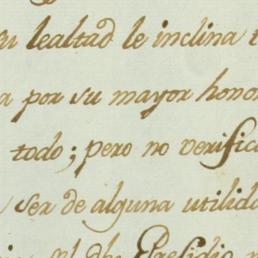 su lealtad le inclina
a por su mayor hono
todo; pero no verific
ser de alguna utilida
el dho Presidio